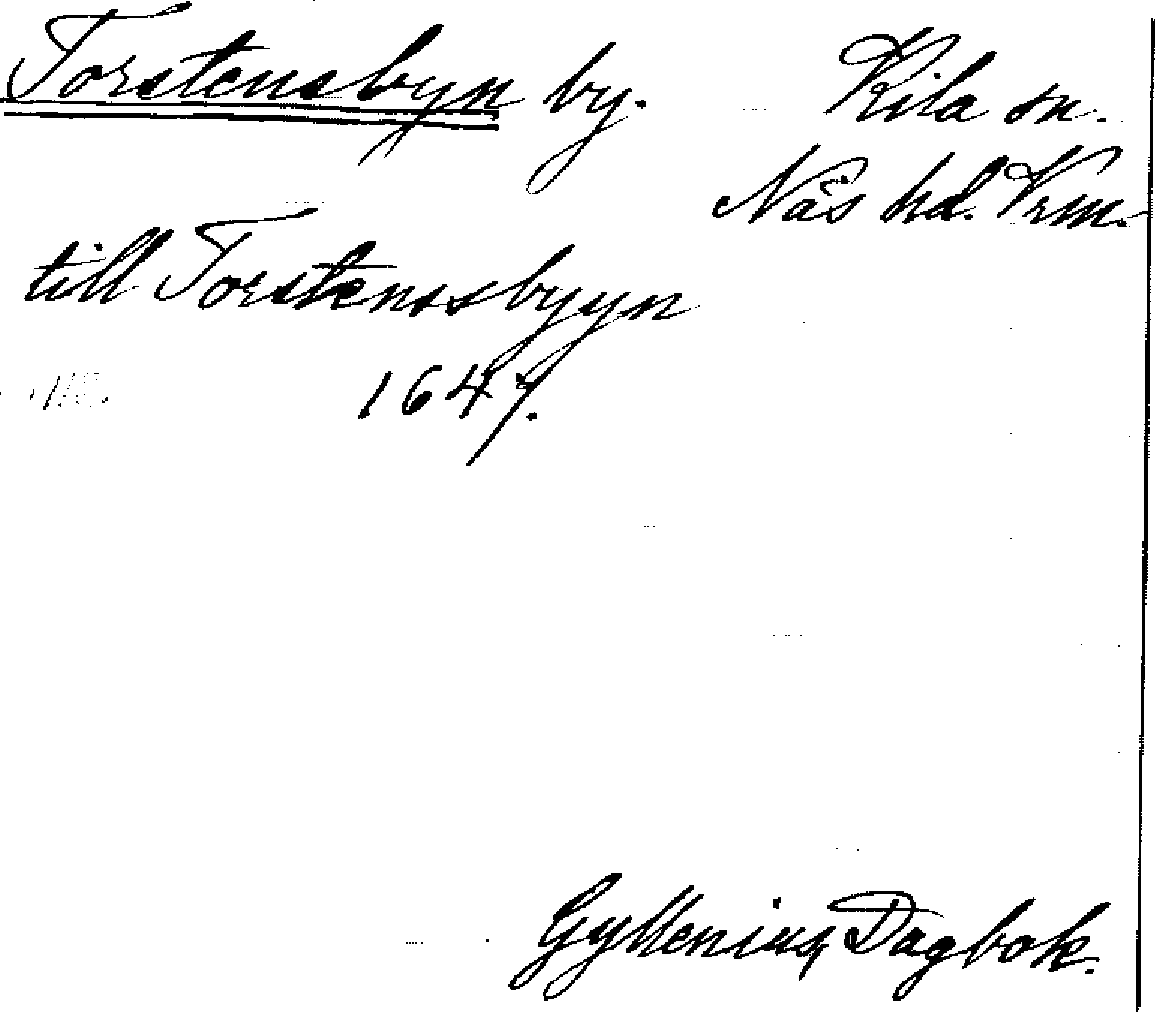 Torstensbyn by. Kila sn.
Näs hd. Vrm.
till Torstenssbyyn
1647.
Gyllenius, Dagbok.